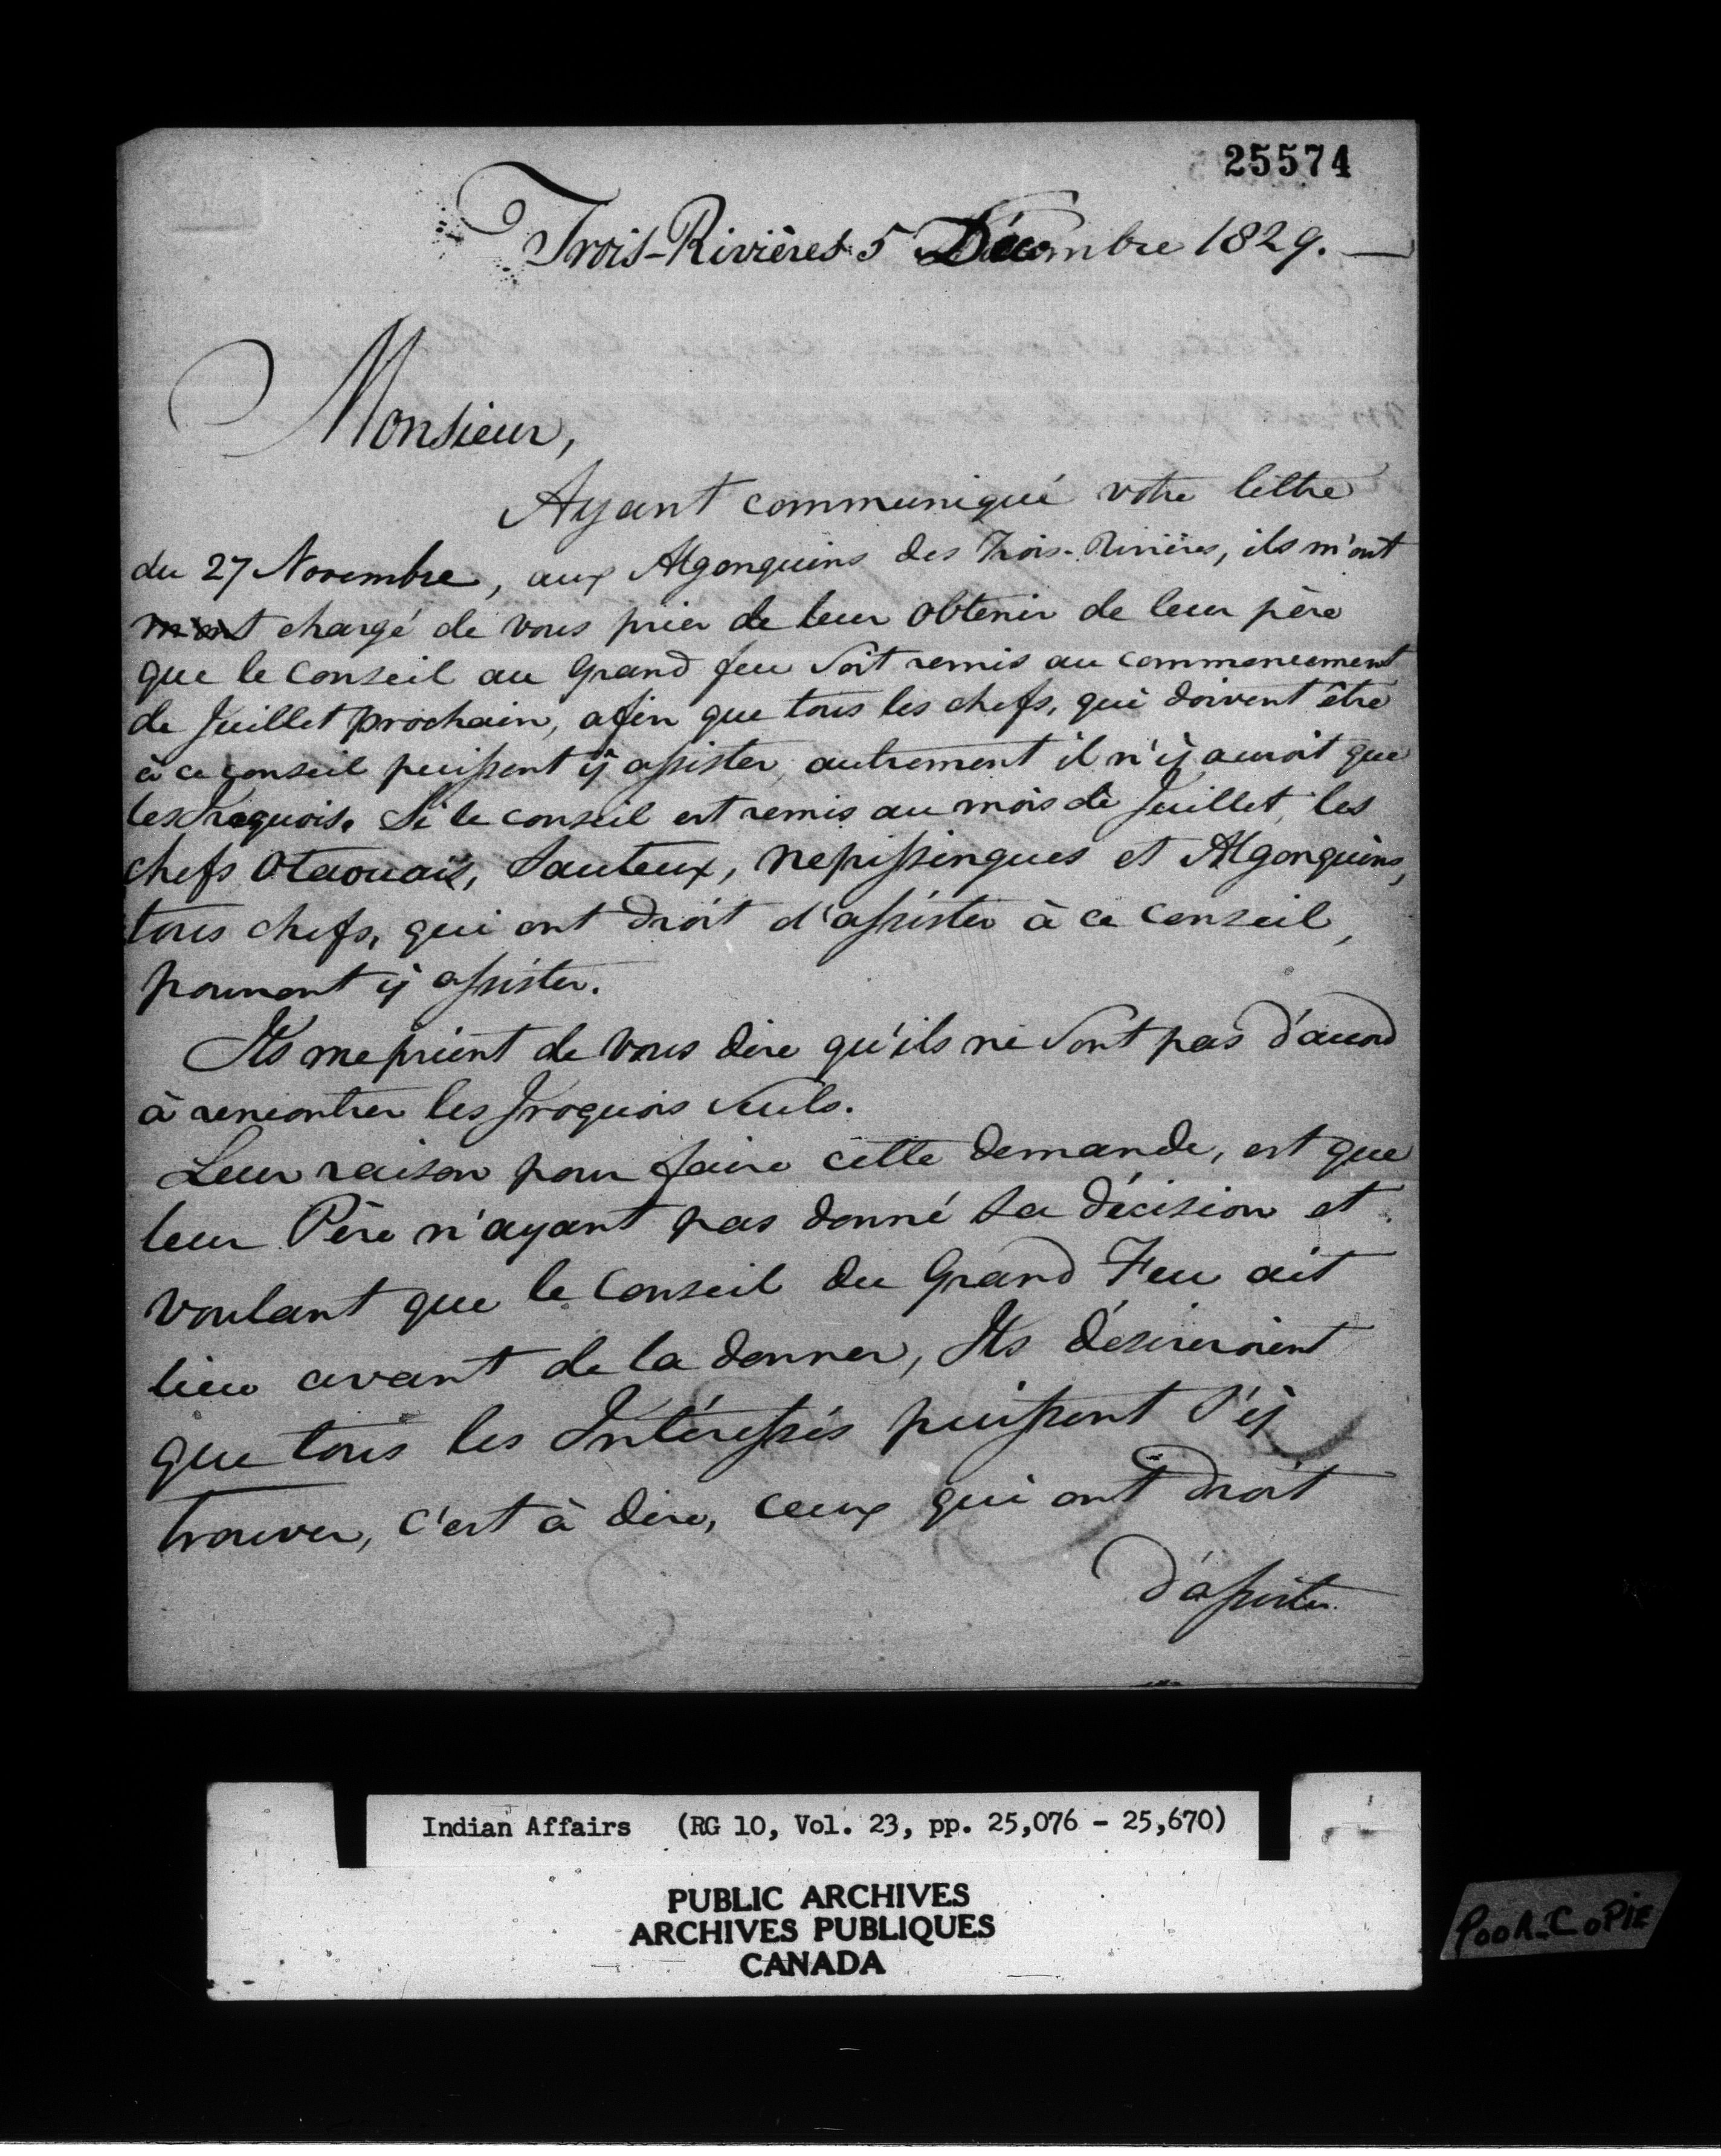 25574
Trois-Rivières 5 Décembre 1829. —
Monsieur,
Ayant communiqué votre lettre
du 27 Novembre, aux Algonquins des Trois-Rivières, ils m'ont
m'ont chargé de vous prier de leur obtenir de leur père
que le conseil au Grand feu soit remis au commencement
de Juillet prochain, afin que tous les chefs, qui doivent être
à ce conseil puissent ÿ assister, autrement il n'ÿ auroit que
les Iroquois. Si le conseil est remis au mois de Juillet, les
chefs Otaouais, Sauteux, Nepissingues et Algonquins,
tous chefs, qui ont droit d'assister à ce conseil,
pourront ÿ assister.
Ils me prient de vous dire qu'ils ne sont pas d'accord
à rencontrer les Iroquois seuls.
Leur raison pour faire cette demande, est que
leur Père n'ayant pas donné sa décision et
voulant que le Conseil du Grand Feu ait
lieu avant de la donner, Ils désireroient
que tous les Intéressés puissent s'ÿ
trouver, c'est à dire, ceux qui ont droit
d'assister
Indian Affairs (RG 10, Vol. 23, pp. 25,076 - 25,670)
PUBLIC ARCHIVES
ARCHIVES PUBLIQUES
CANADA
POOR COPIE